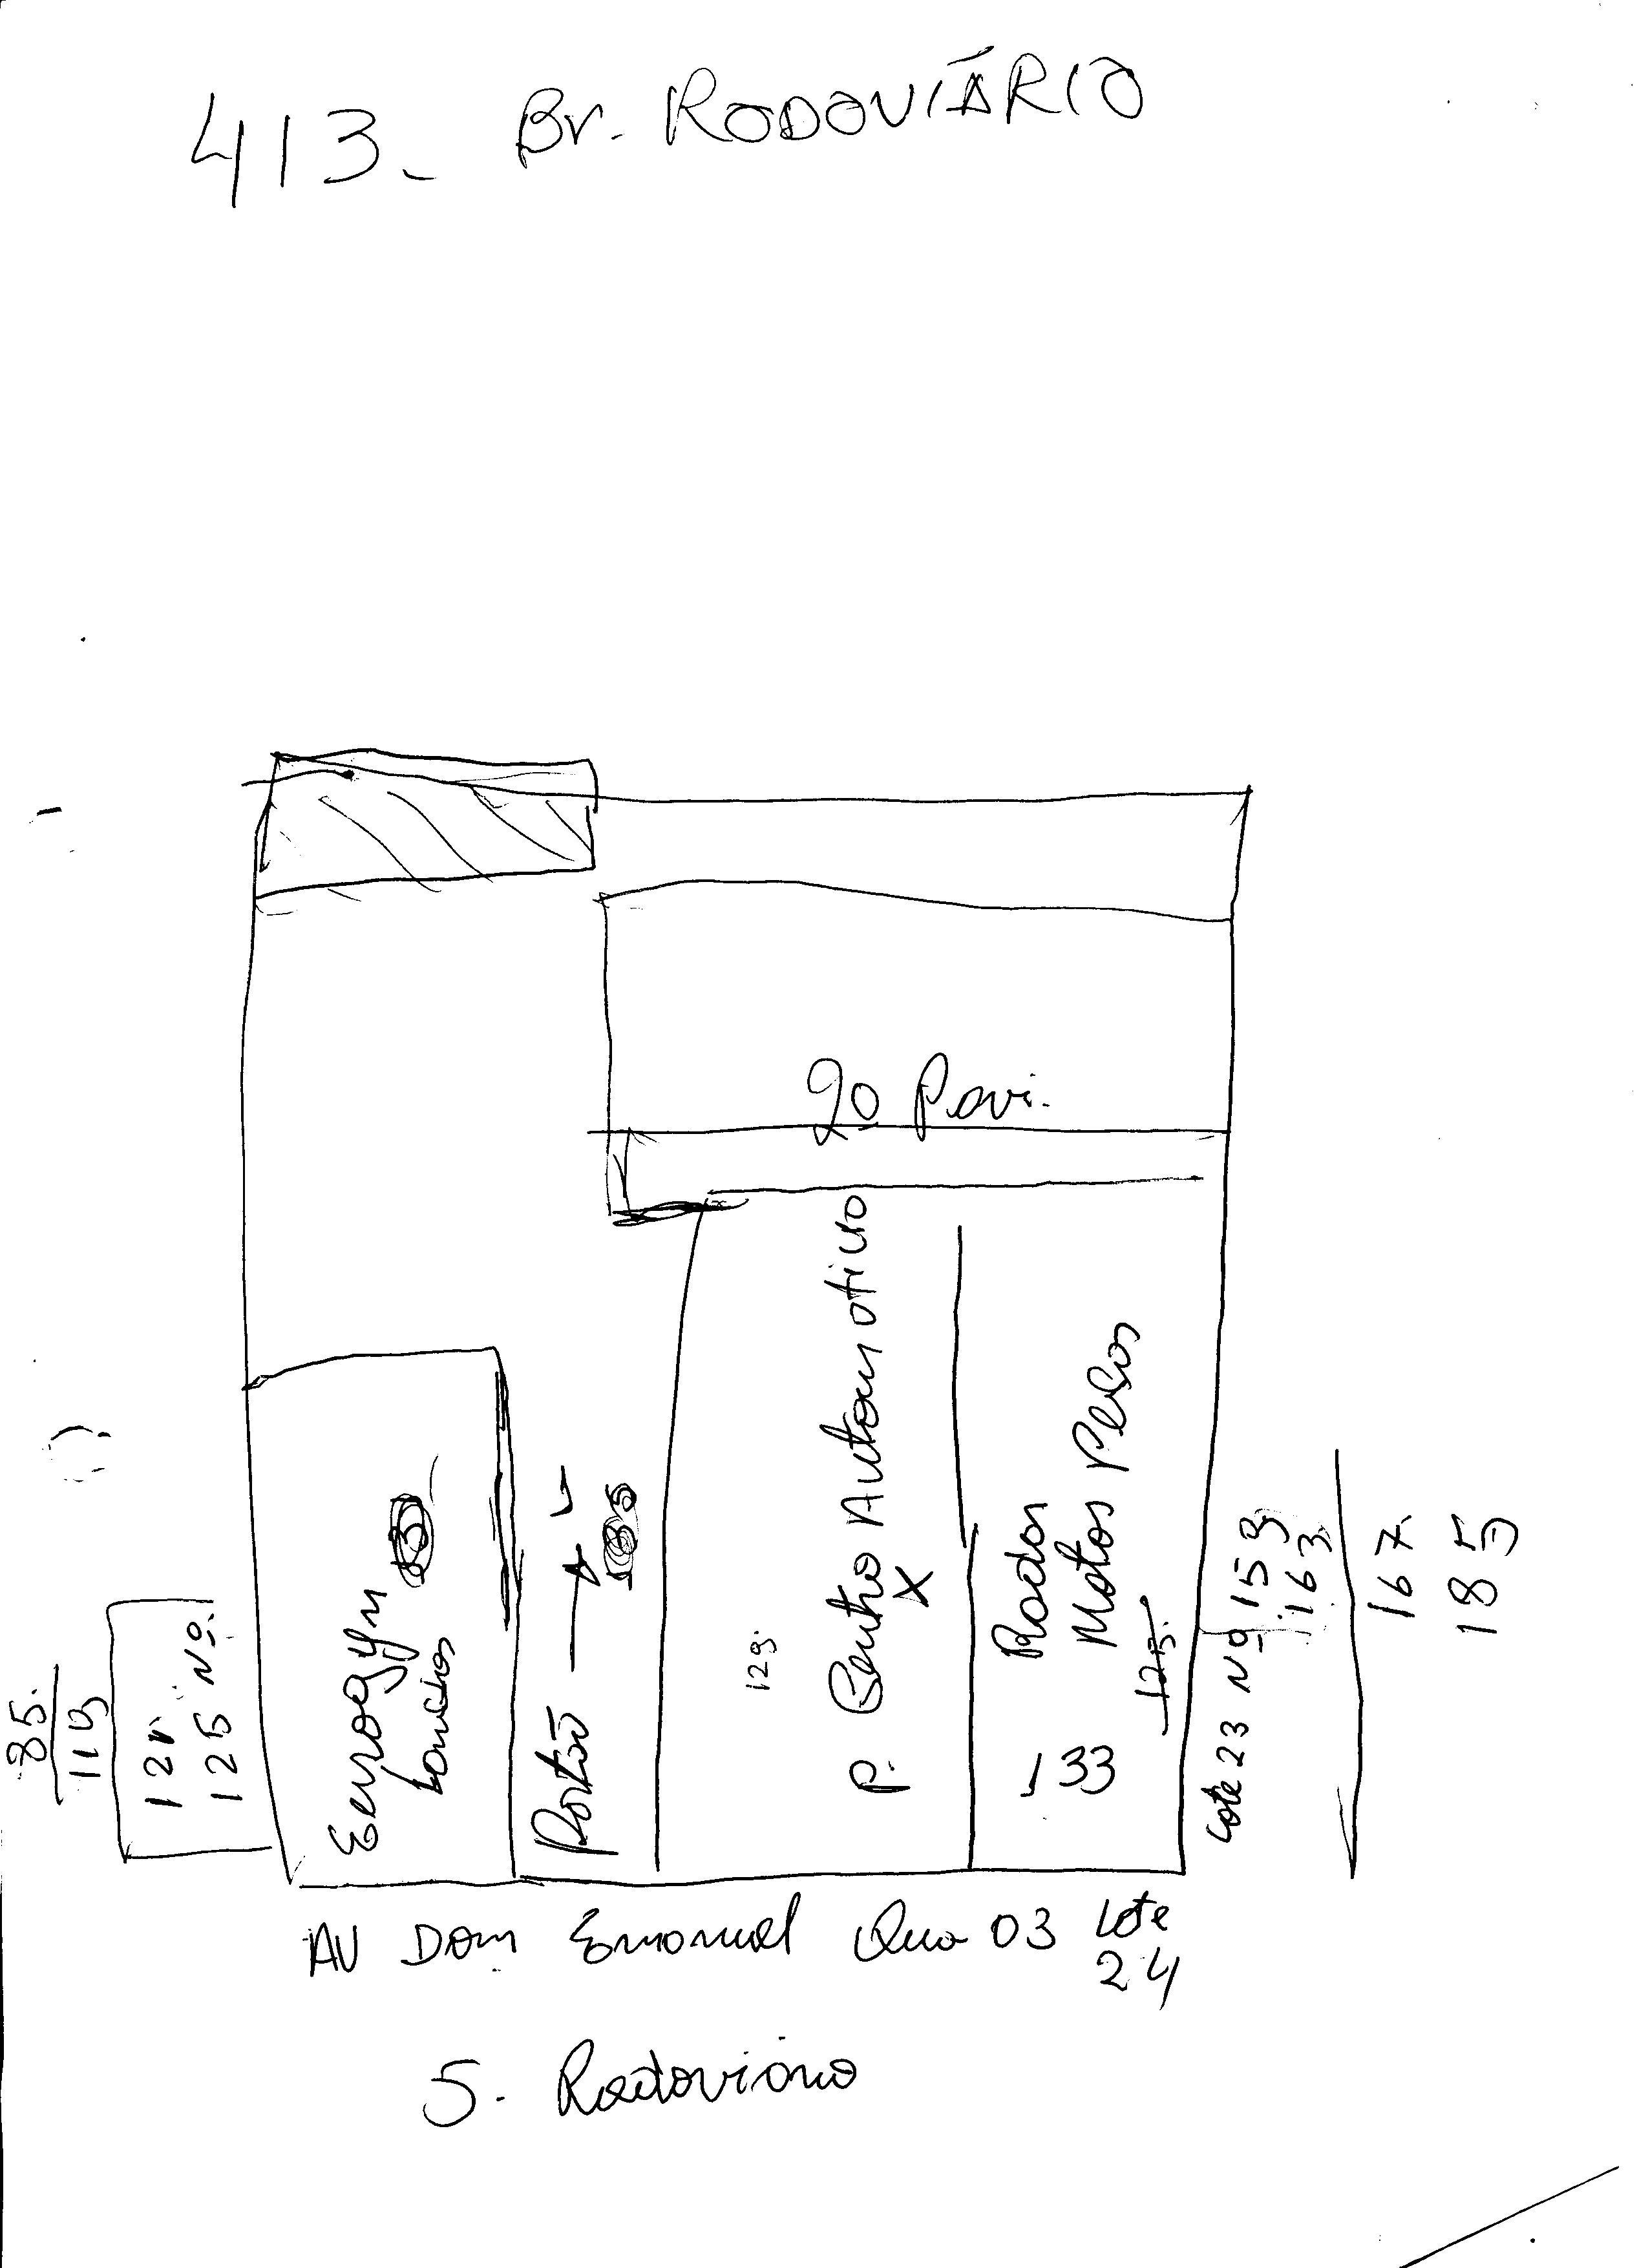 413- Br. RODOVIÁRIO
2º Pavi.
85.
119
121.
125 Nº.
Eurogyn
Portão
129.
P. Bentho Automotivo
X
Rodon
Motos Peças
133
Lote 23 Nº 153
163.
167.
185
AV Dom Emanuel Qua 03 Lote
24
S. Rodoviário